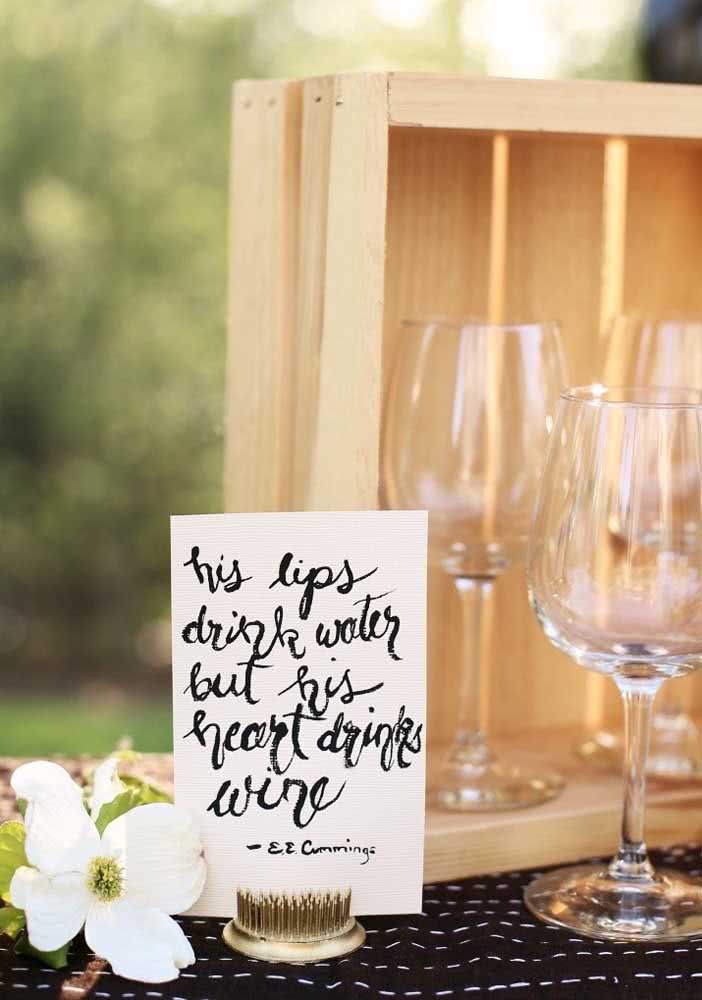 his lips
drink water
but his
heart drinks
wine
- E.E. Cummings